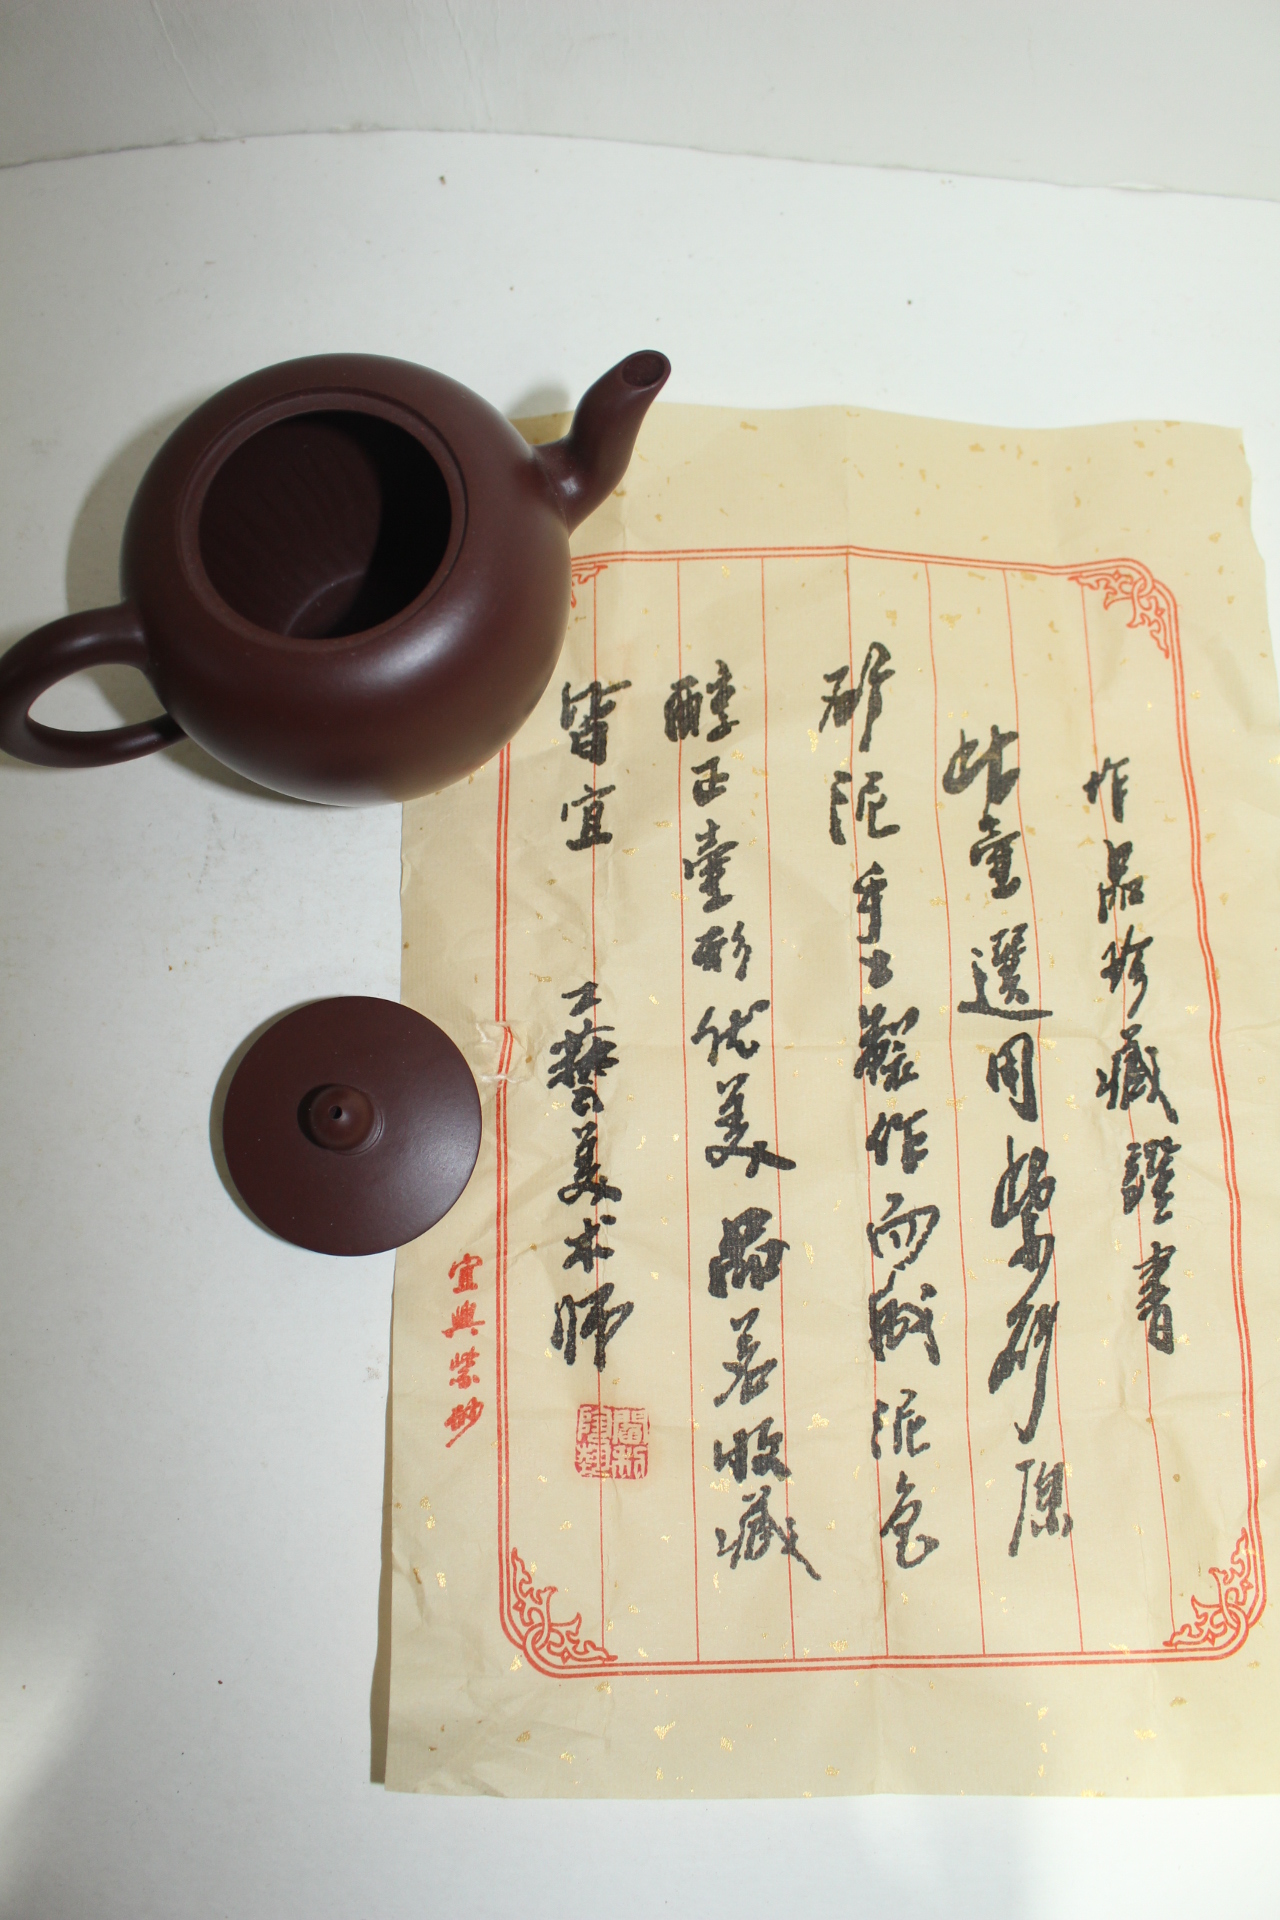 作品珍藏證書
此壺選用紫砂原
砂泥手工製作而成泥色
醇正壺形优美品茗收藏
皆宜 工藝美术師
宜興紫砂